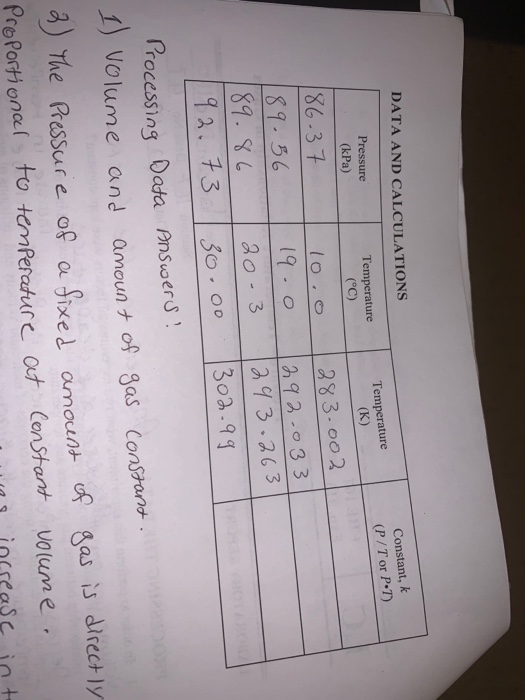 DATA AND CALCULATIONS
Pressure (kPa) Temperature (°C) Temperature (K) Constant, k (P / T or P•T)
86.37 10.0 283.002
89.56 19.0 292.033
89.86 20.3 293.263
92.73 30.00 302.99
Processing Data Answers!
1) Volume and amount of gas constant.
2) The Pressure of a fixed amount of gas is directly
Proportional to temperature at constant volume.
increase in